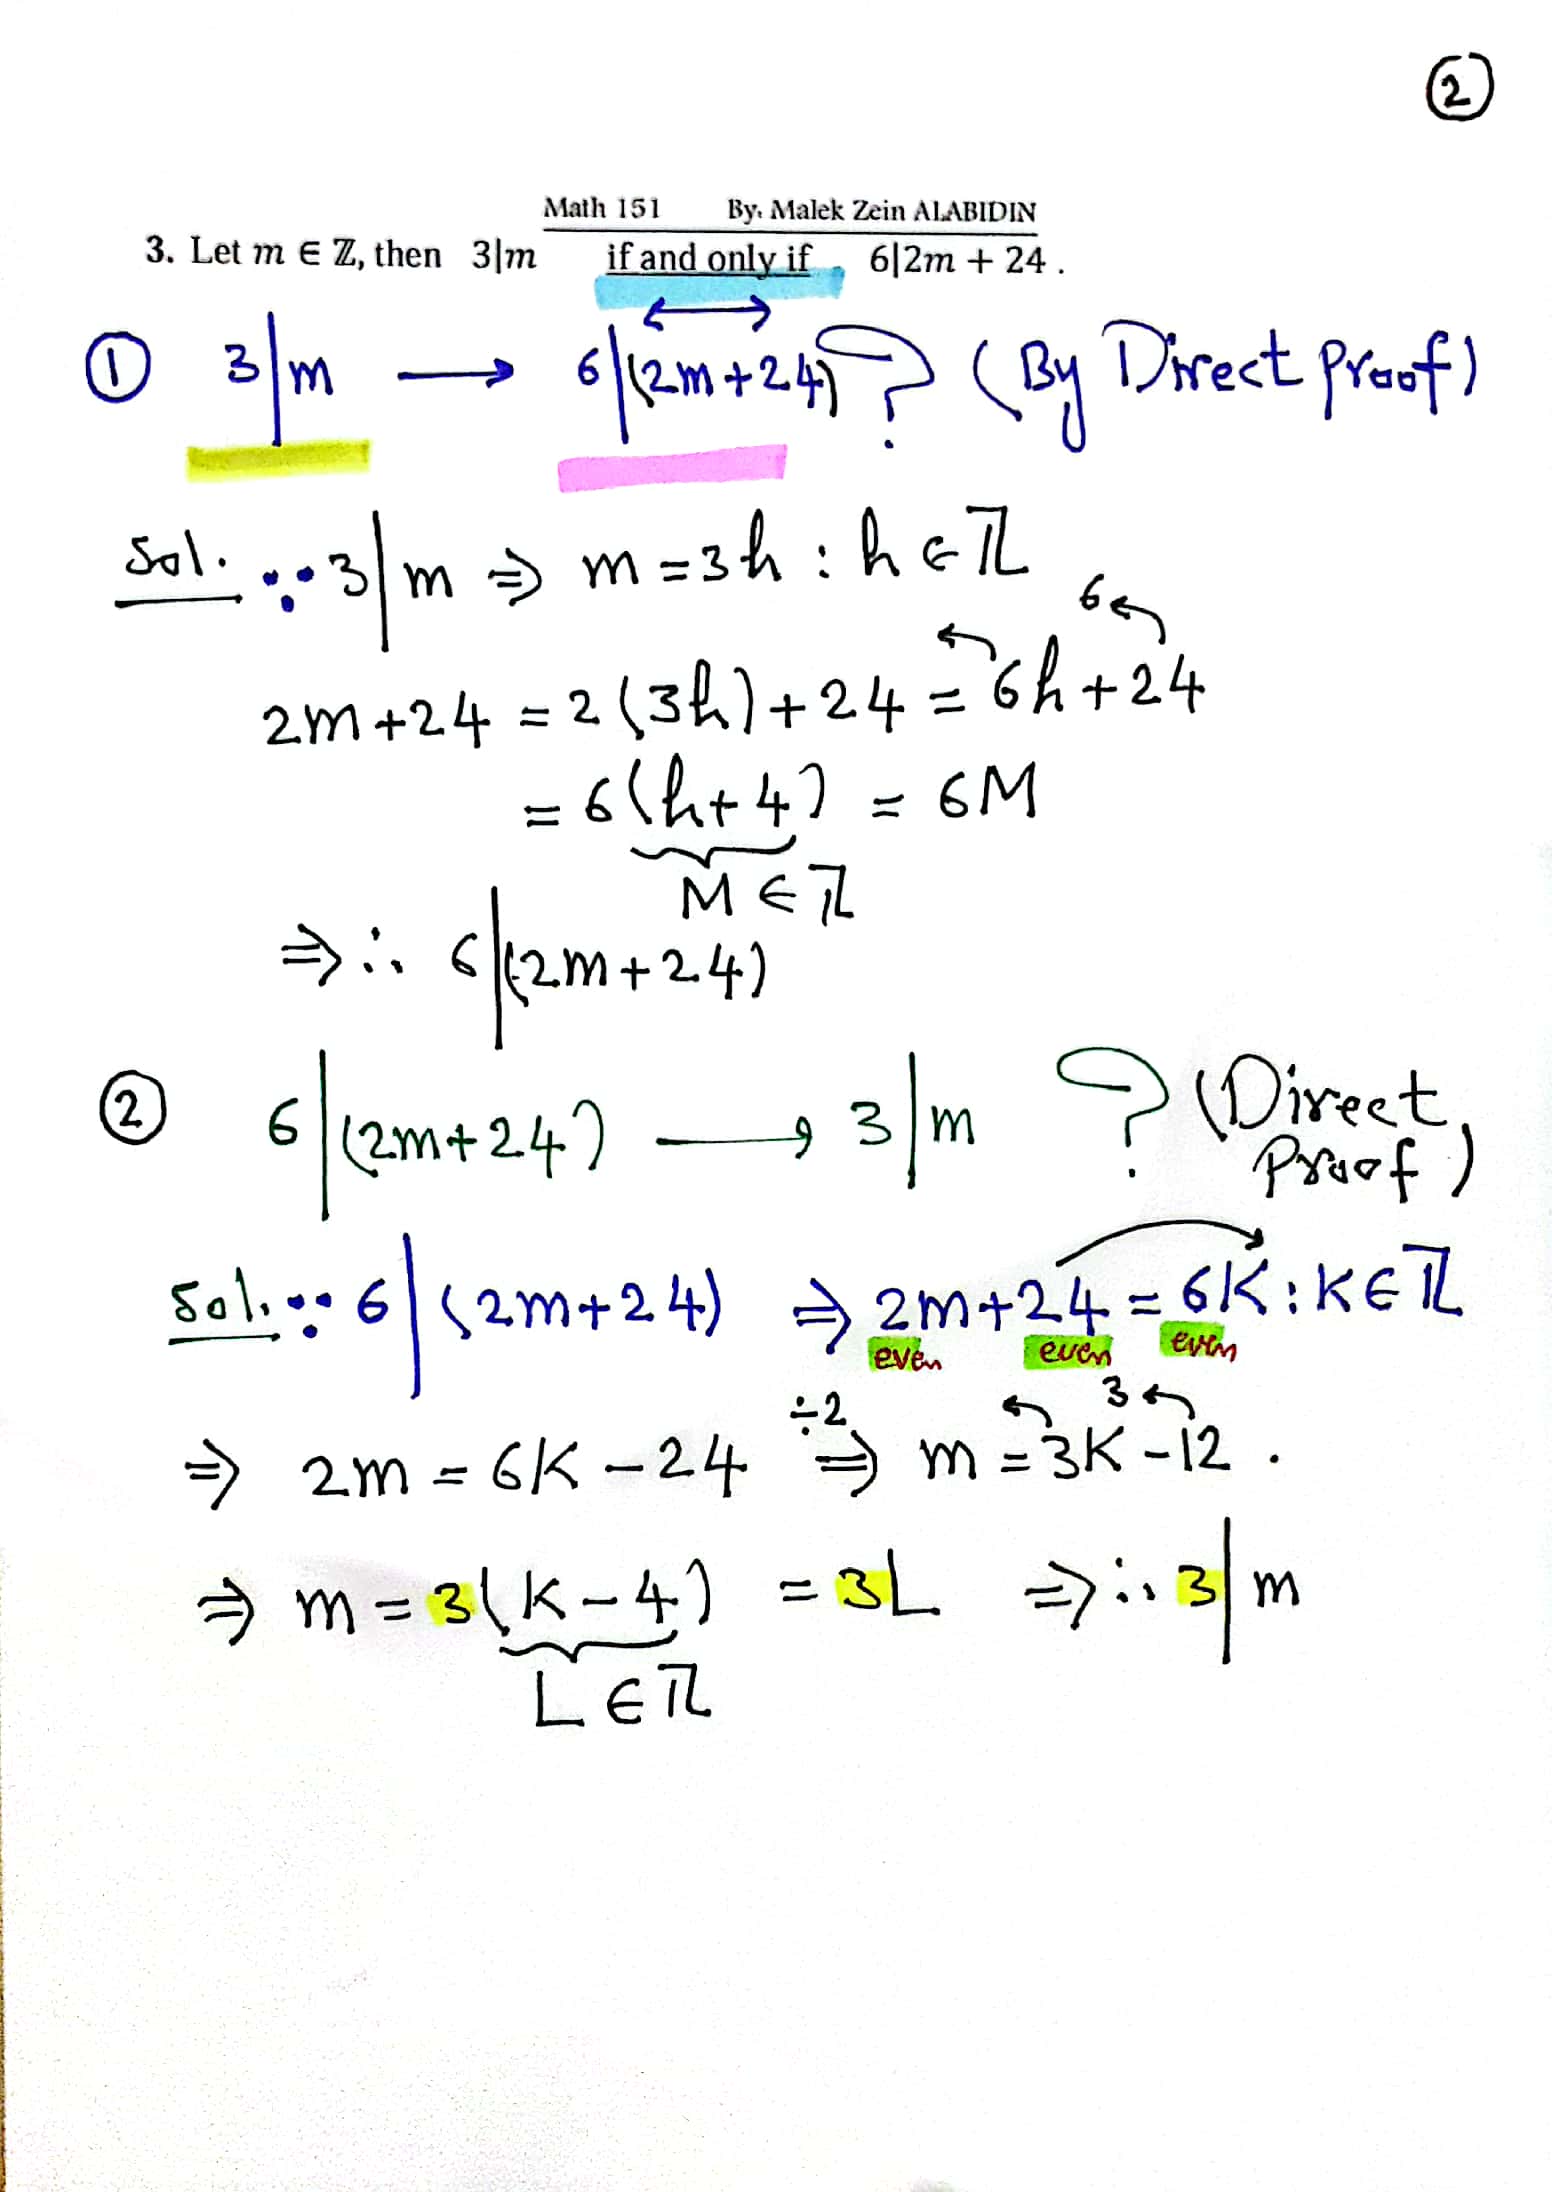 ②
Math 151 By: Malek Zein ALABIDIN
3. Let m ∈ ℤ, then 3|m if and only if 6|2m + 24 .
↔
① 3|m → 6|(2m+24) ? (By Direct Proof)
Sol. ∵ 3|m ⇒ m = 3h : h ∈ ℤ
6
2m+24 = 2(3h)+24 = 6h+24
= 6(h+4) = 6M
M ∈ ℤ
⇒ ∴ 6|(2m+24)
② 6|(2m+24) → 3|m ? (Direct Proof)
Sol. ∵ 6|(2m+24) ⇒ 2m+24 = 6K : K ∈ ℤ
even even even
÷2 3
⇒ 2m = 6K - 24 ⇒ m = 3K - 12 .
⇒ m = 3(K-4) = 3L ⇒ ∴ 3|m
L ∈ ℤ